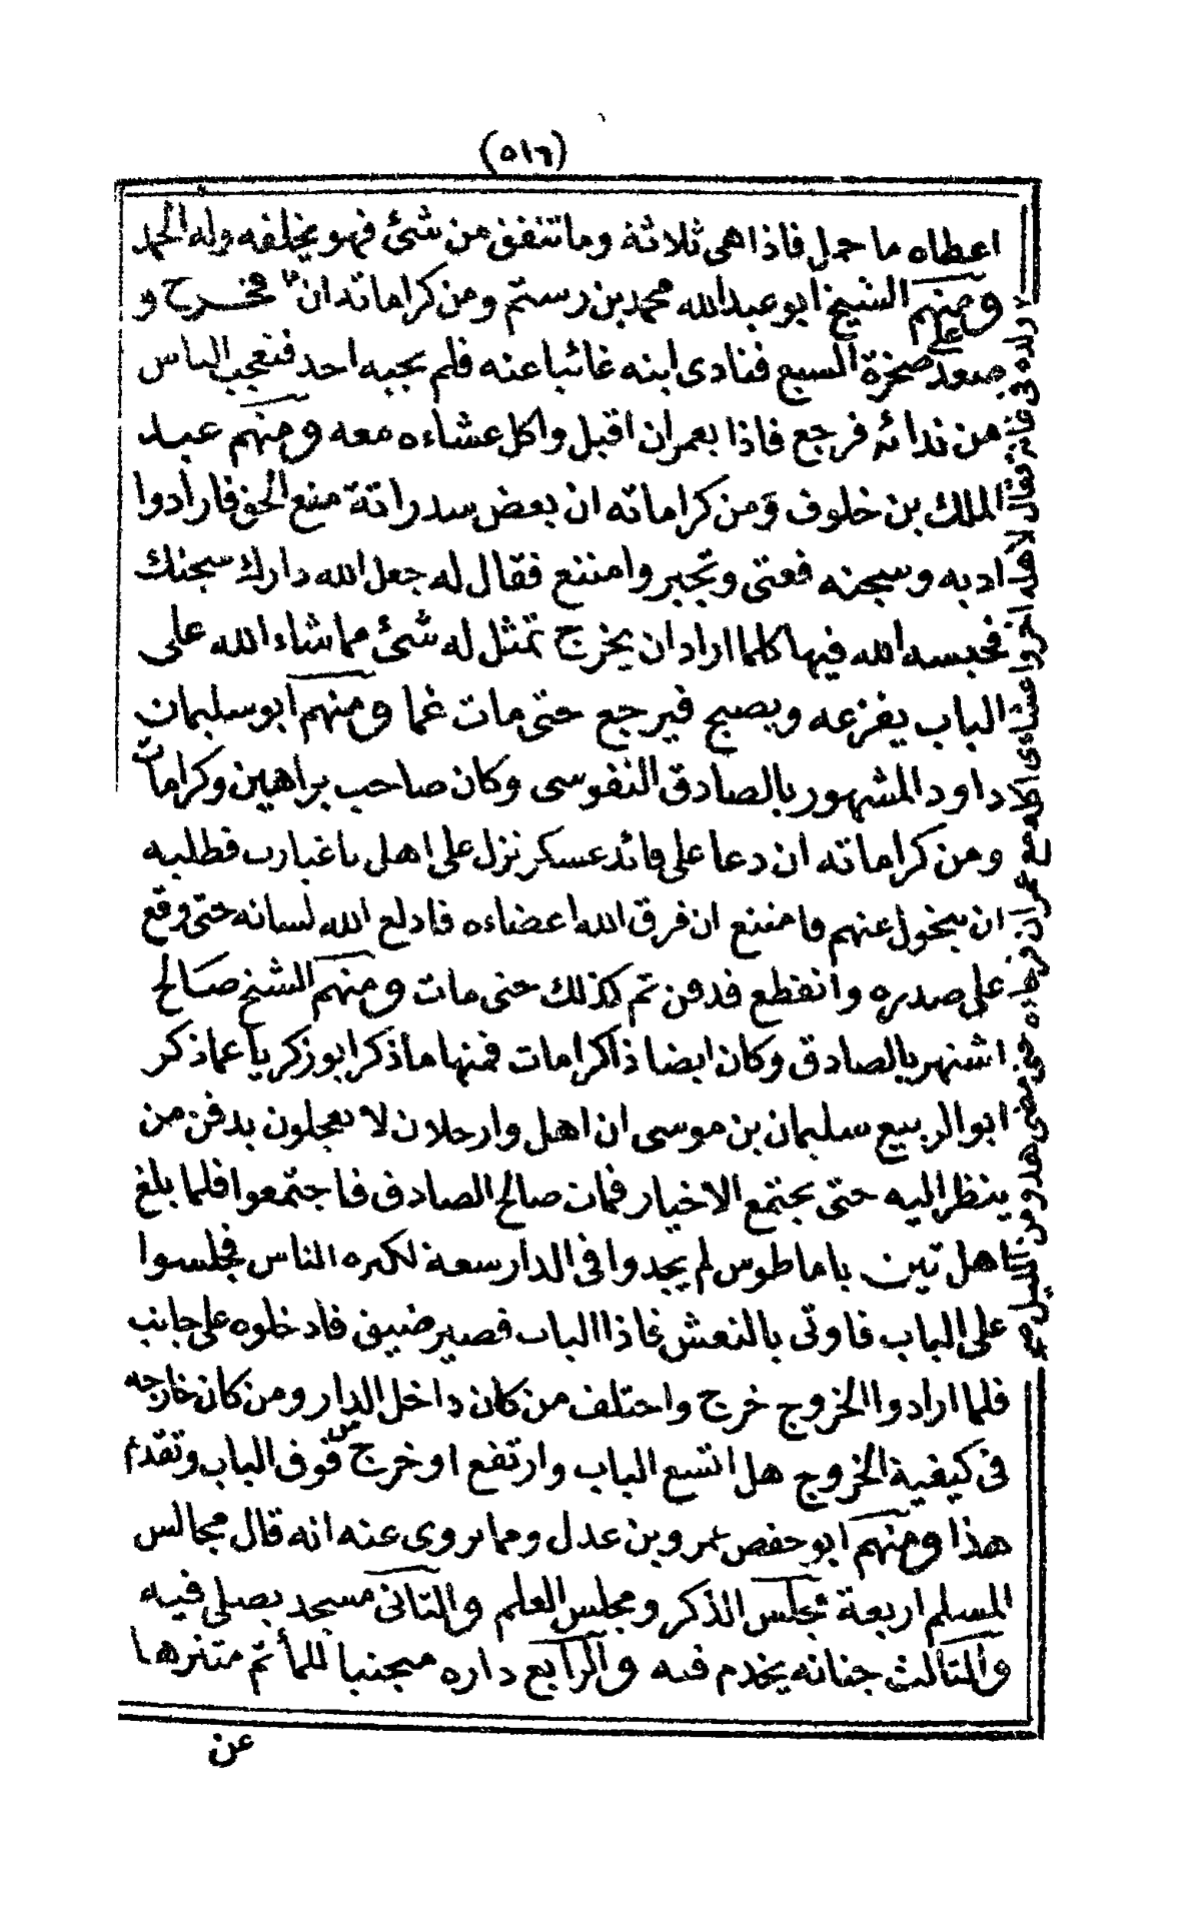 (٥١٦)
اعطاه ما حمل فاذا هى ثلاثة وما تنفق من شئ فهو يخلفه وله الحمد
ومنهم الشيخ ابو عبدالله محمد بن رستم ومن كراماته ان فخرج و
صعد على صخرة السبع فنادى ابنه غائبا عنه فلم يجبه احد فتعجب الناس
من ندائه فرجع فاذا بعمران اقبل واكل عشاءه معه ومنهم عبد
الملك بن خلوف ومن كراماته ان بعض سدراتة منع الحق فارادوا
ادبه وسجنه فعتى وتجبر وامتنع فقال له جعل الله دارك سجنك
فحبسه الله فيها كلما اراد ان يخرج تمثل له شئ مما شاء الله على
الباب يفزعه ويصيح فيرجع حتى مات غما ومنهم ابو سليمان
داود المشهور بالصادق النفوسى وكان صاحب براهين وكرامات
ومن كراماته ان دعا على قائد عسكر نزل على اهل باغبارب فطلبه
ان يتحول عنهم فامتنع ان فرق الله اعضاءه فادلع الله لسانه حتى وقع
على صدره وانقطع فدفن ثم كذلك حتى مات ومنهم الشيخ صالح
اشتهر بالصادق وكان ايضا ذا كرامات فمنها ما ذكر ابو زكرياء عما ذكر
ابو الربيع سليمان بن موسى ان اهل وارجلان لا يعجلون بدفن من
ينظر اليه حتى يجتمع الاخيار فمات صالح الصادق فاجتمعوا فلما بلغ
اهل تين باماطوس لم يجدوا فى الدار سعة لكثره الناس فجلسوا
على الباب فاوتى بالنعش فاذا الباب قصير ضيق فادخلوه على جانب
فلما ارادوا الخروج خرج واختلف من كان داخل الدار ومن كان خارجه
فى كيفية الخروج هل اتسع الباب وارتفع او خرج من فوق الباب وتقدم
هذا ومنهم ابو حفص عمرو بن عدل ومما يروى عنه انه قال مجالس
المسلم اربعة مجلس الذكر ومجلس العلم والثانى مسجد يصلى فيه
والثالث جنانه يخدم فيه والرابع داره مجتنبا للمأثم متنزها
عن
ولده فى غابة فقال لاهله اخروا عشاءى اكله مع عمران فرجاءه حتى مضى هدو من الليل صح